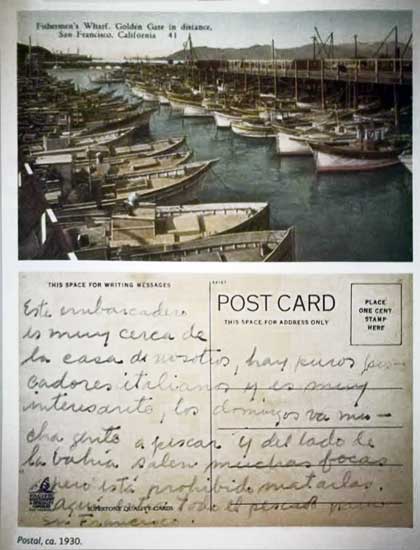 Fishermen's Wharf. Golden Gate in distance,
San Francisco, California 41
THIS SPACE FOR WRITING MESSAGES
POST CARD
THIS SPACE FOR ADDRESS ONLY
PLACE
ONE CENT
STAMP
HERE
Este embarcadero
es muy cerca de
la casa de nosotros, hay puros pes-
cadores italianos y es muy
interesante, los domingos va mu-
cha gente a pescar y del lado de
la bahia salen muchas focas
pero está prohibido matarlas.
aquí todo el pescado para
San Francisco.
SUPERTONE QUALITY CARDS
Postal, ca. 1930.